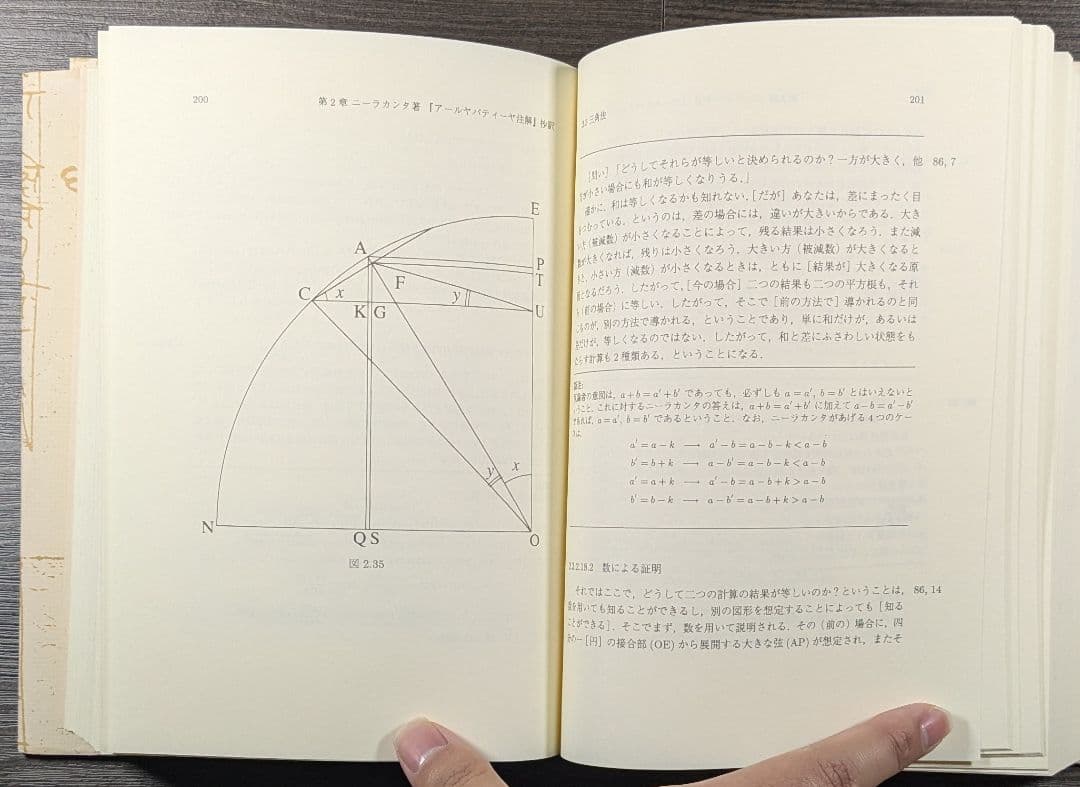 200
第2章 ニーラカンタ著『アールヤバティーヤ注解』抄訳
E
A
P
T
F
C
x
y
K G
U
y
x
N
Q S
O
図 2.35
201
三角法
[問い]「どうしてそれらが等しいと決められるのか？一方が大きく，他 86, 7
が小さい場合にも和が等しくなりうる.」
確かに，和は等しくなるかも知れない．[だが] あなたは，差にまったく目
をつむっている．というのは，差の場合には，違いが大きいからである．大き
い方（被減数）が小さくなることによって，残る結果は小さくなろう．また減
数が大きくなれば，残りは小さくなろう．大きい方（被減数）が大きくなると
き，小さい方（減数）が小さくなるときは，ともに [結果が] 大きくなる原
因となるだろう．したがって，[今の場合] 二つの結果も二つの平方根も，それ
（前の場合）に等しい．したがって，そこで [前の方法で] 導かれるのと同
じものが，別の方法で導かれる，ということであり，単に和だけが，あるいは
差だけが，等しくなるのではない．したがって，和と差にふさわしい状態をも
たらす計算も2種類ある，ということになる．
反論者の意図は，a+b=a′+b′ であっても，必ずしも a=a′, b=b′ とはいえないと
いうこと．これに対するニーラカンタの答えは，a+b=a′+b′ に加えて a−b=a′−b′
であれば，a=a′, b=b′ であるということ．なお，ニーラカンタがあげる4つのケー
スは，
a′=a−k ⟶ a′−b=a−b−k<a−b
b′=b+k ⟶ a−b′=a−b−k<a−b
a′=a+k ⟶ a′−b=a−b+k>a−b
b′=b−k ⟶ a−b′=a−b+k>a−b
2.2.18.2 数による証明
それではここで，どうして二つの計算の結果が等しいのか？ということは， 86, 14
数を用いても知ることができるし，別の図形を想定することによっても [知る
ことができる]．そこでまず，数を用いて説明される．その（前の）場合に，四
分の一 [円] の接合部 (OE) から展開する大きな弦 (AP) が想定され，またそ